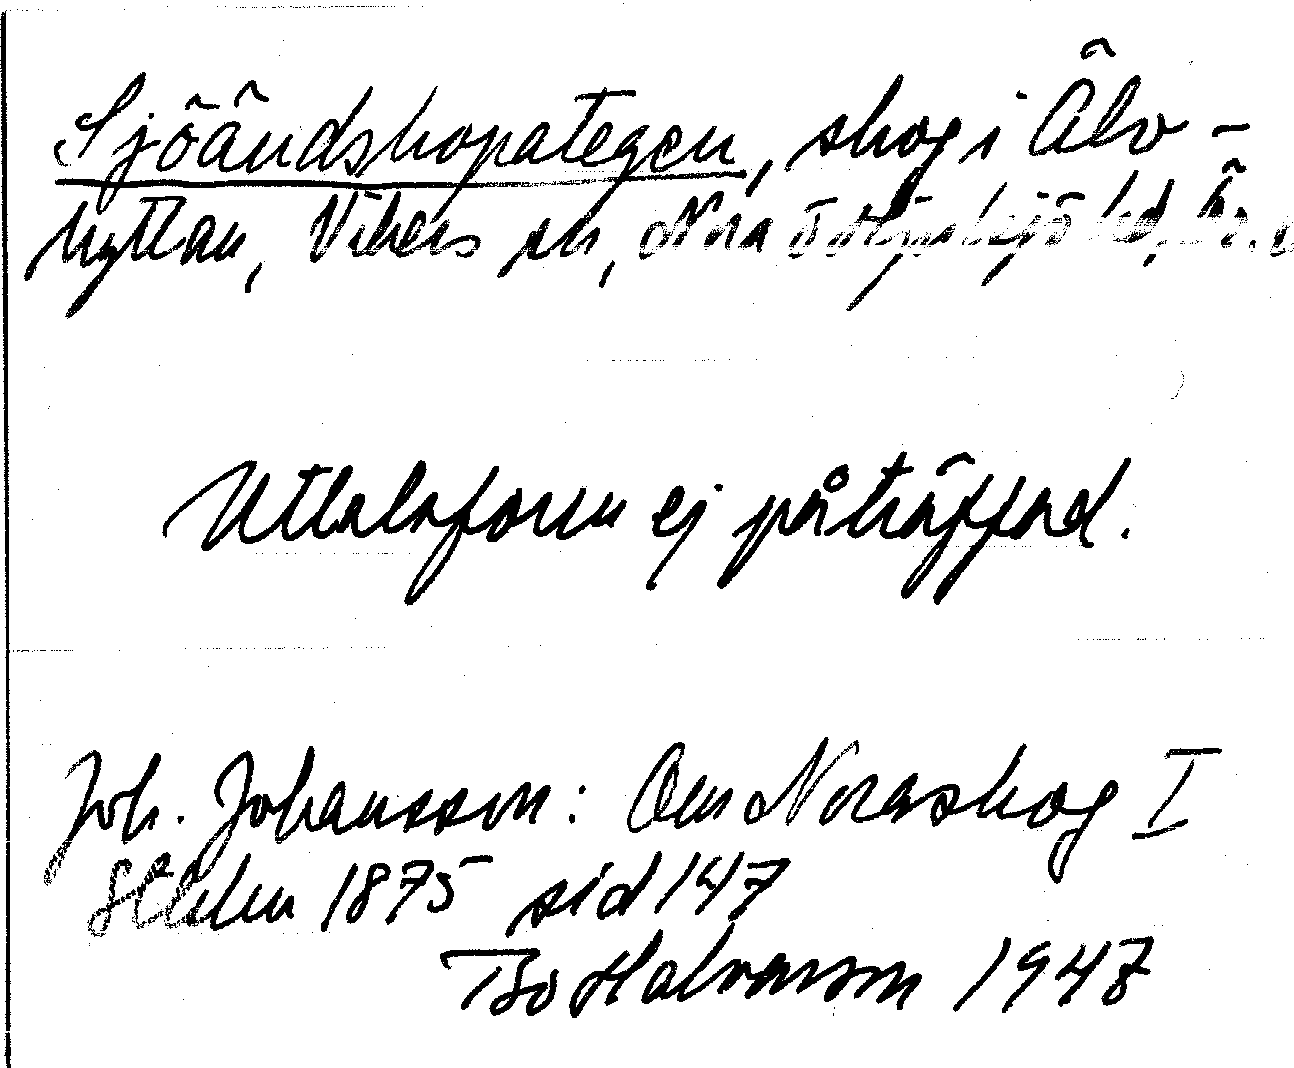 Sjöändskopategen, skog i Älv-
hyttan, Vikers sn, Nora
Uttalsform ej påträffad.
Joh. Johansson: Om Noraskog I
Sthlm 1875 sid 147
Bo Halvarson 1947